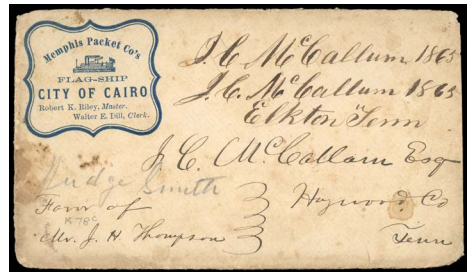 Memphis Packet Co's
FLAG-SHIP
CITY OF CAIRO
Robert K. Riley, Master.
Walter E. Dill, Clerk.
J. C. McCallum 1865
J. C. McCallum 1865
Elkton Tenn
J. C. McCallum Esq
Judge Smith
Haywood Co
Tenn
Favor of
Mr. J. H. Thompson